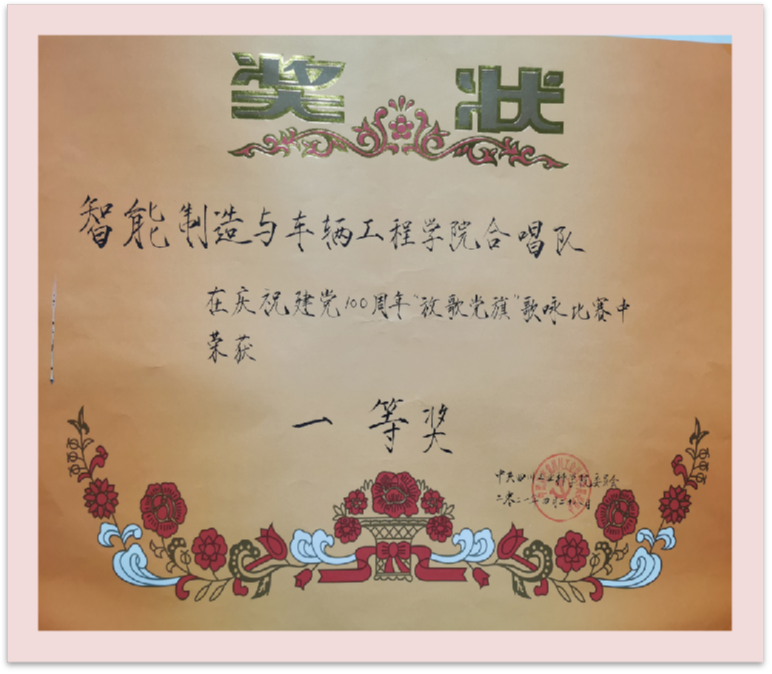 奖 状
智能制造与车辆工程学院合唱队
在庆祝建党100周年“放歌党旗”歌咏比赛中
荣获
一等奖
中共四川 学院委员会
二零二一年四月二 日